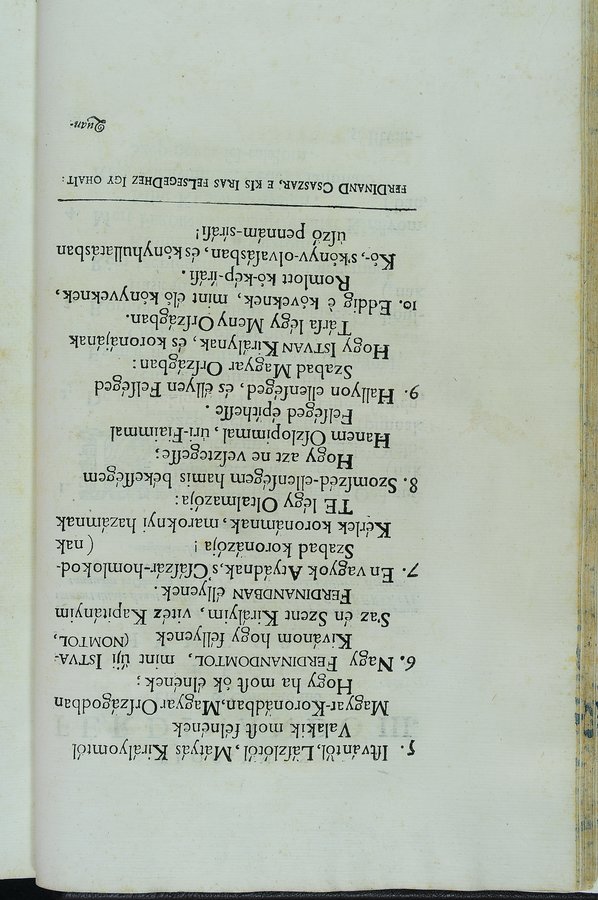 5. Iſtvántól, Láſzlótól, Mátyás Királyomtól
Valakik moſt félnének
Magyar-Koronádban, Magyar Orſzágodban
Hogy ha moſt ők élnének;
6. Nagy FERDINANDOMTOL, mint új ISTVA-
Kivánom hogy féllyenek (NOMTOL,
S'az én Szent Királyim, vitéz Kapitányim
FERDINANDBAN éllyenek.
7. En vagyok Atyádnak, s'Cſáſzár-homlokod-
Szabad koronázója! (nak
Kérlek koronámnak, maroknyi hazámnak
TE légy Oltalmazója:
8. Szomſzéd-ellenſégem hamis békeſſégem
Hogy azt ne veſztegeſſe;
Hanem Oſzlopimmal, úri-Fiaimmal
Felſéged építheſſe.
9. Hallyon ellenſéged, és éllyen Felſéged
Szabad Magyar Orſzágban:
Hogy ISTVAN Királynak, és koronájának
Tárſa légy Meny Orſzágban.
10. Eddig è köveknek, mint élő könyveknek,
Romlott kő-kép-íráſi.
Kő-, s'köny v-olvaſásban, és könyhullatásban
úſző pennám-síráſi!
FERDINAND CSASZAR, E KIS IRAS FELSEGEDHEZ IGY OHAIT:
Quan-